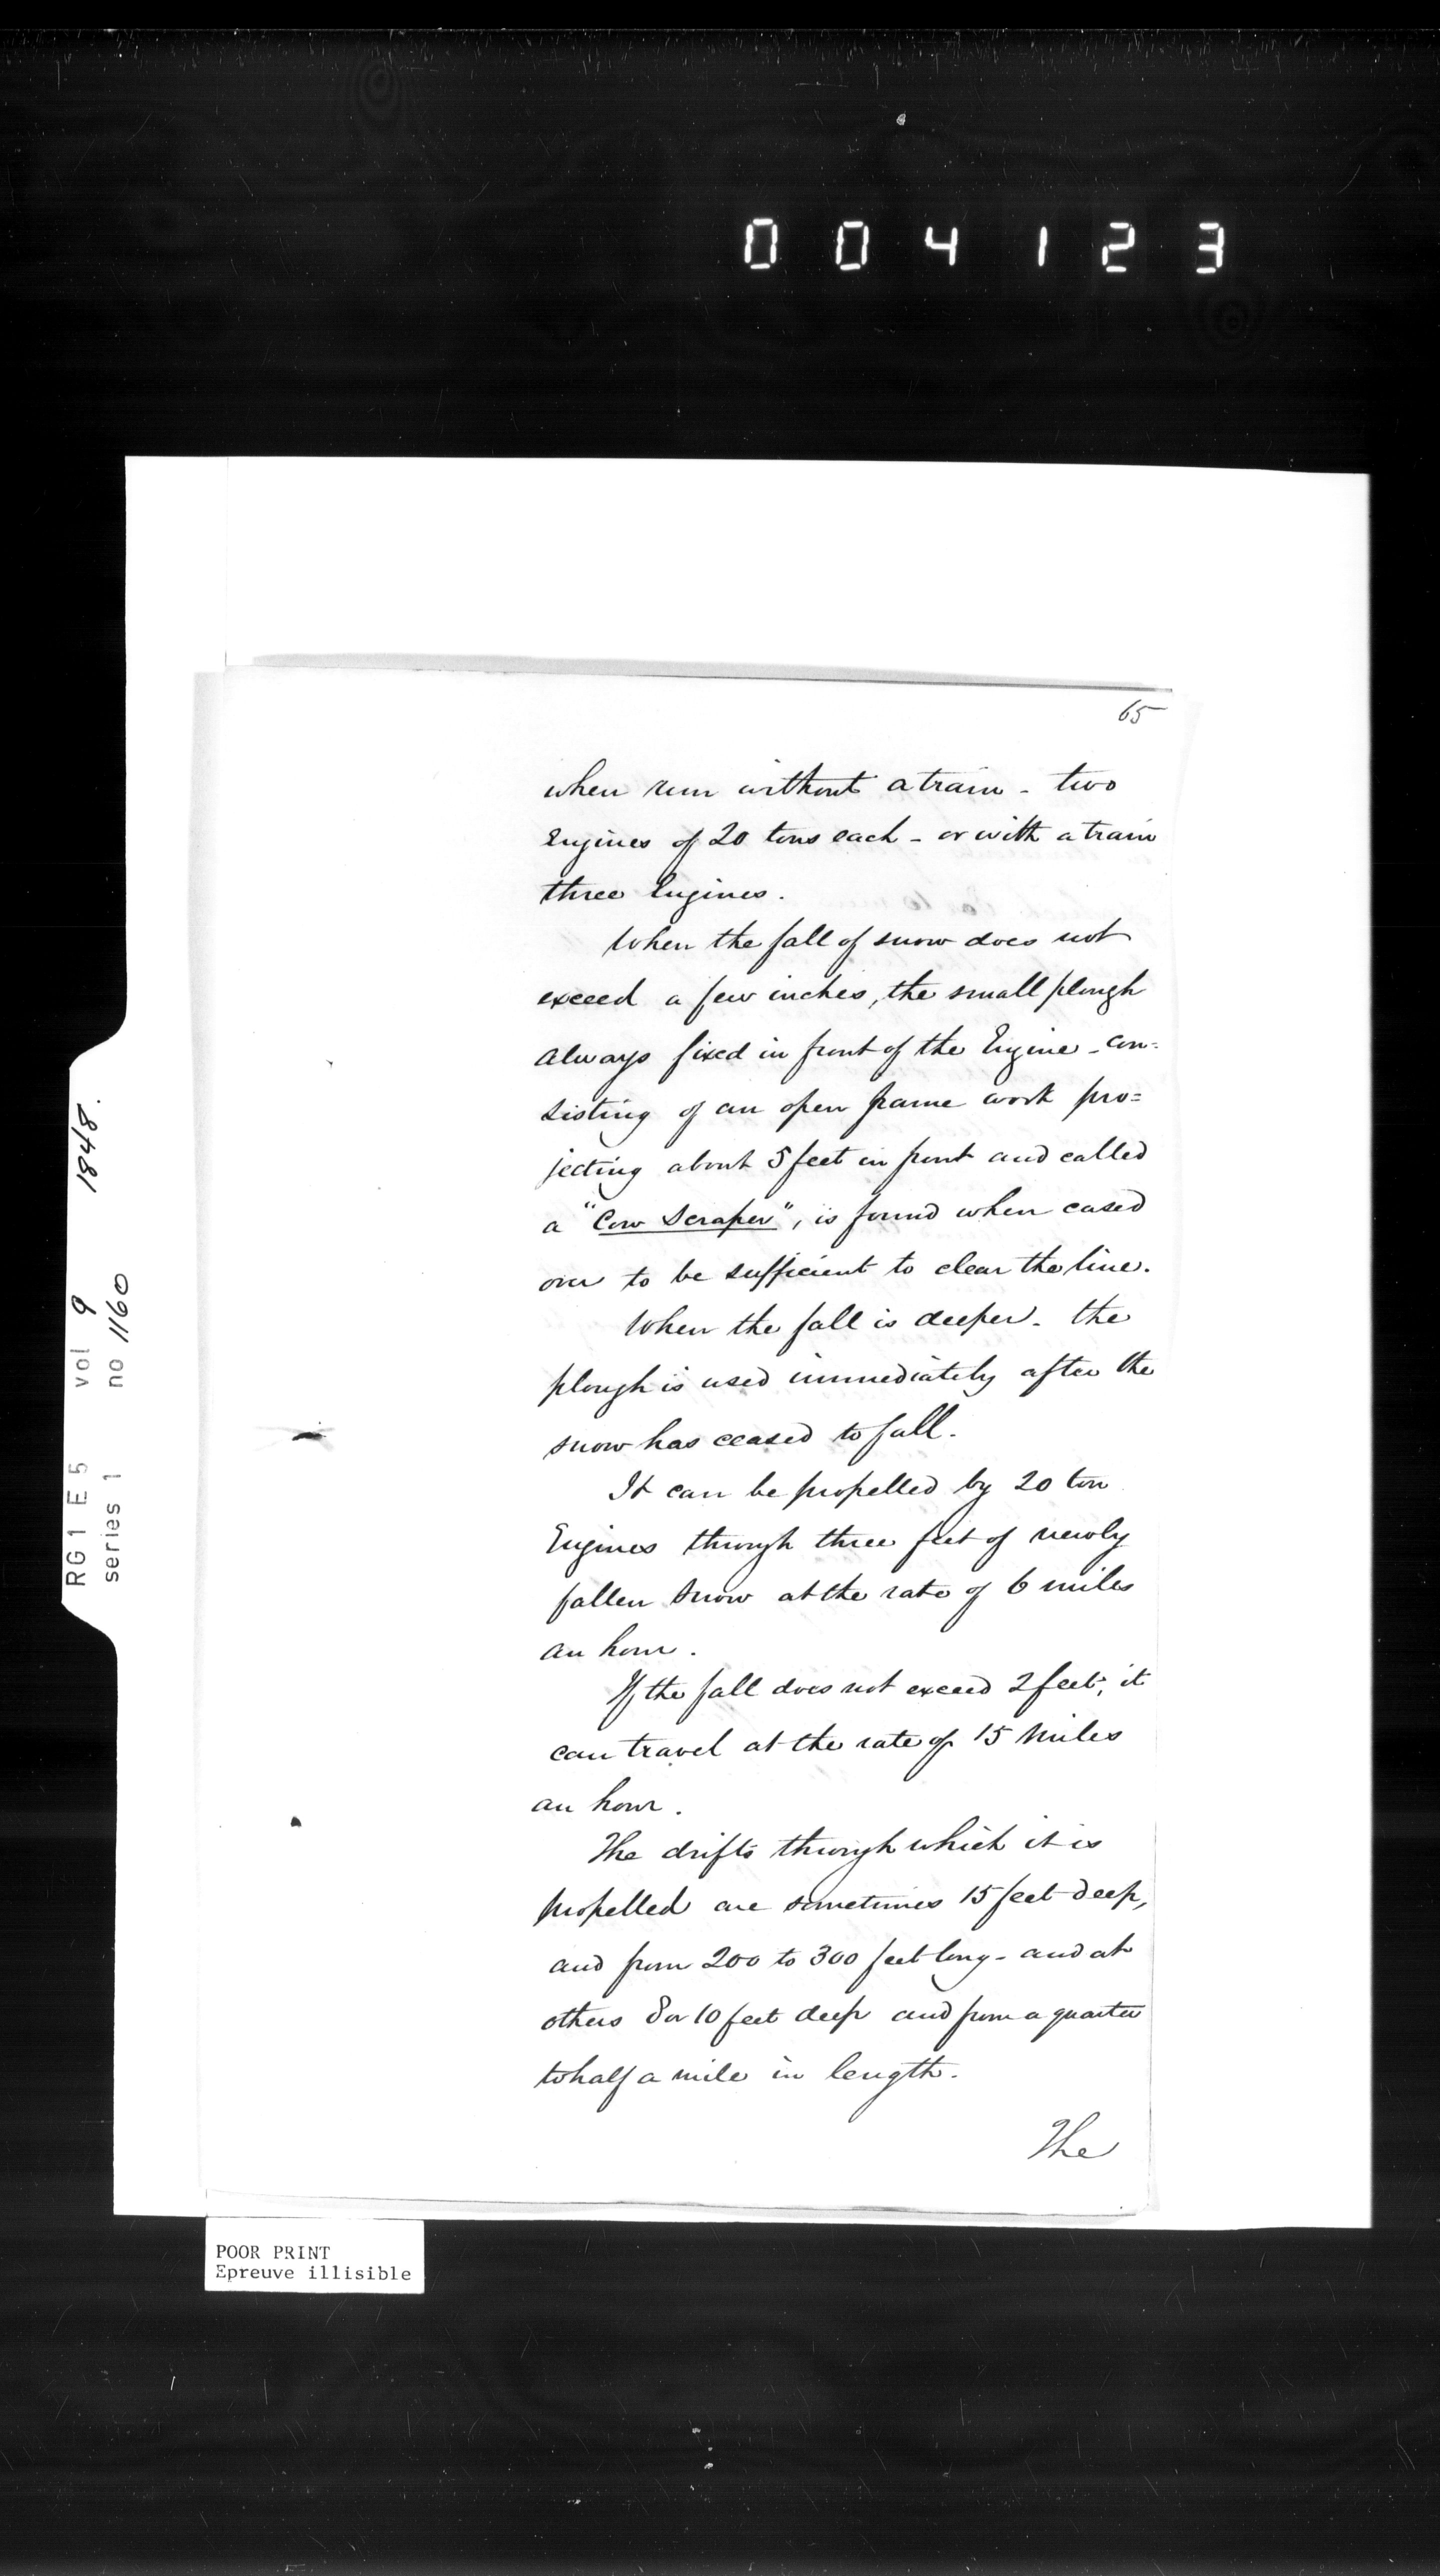 004123
65
when run without a train - two
Engines of 20 tons each - or with a train
three Engines.
When the fall of snow does not
exceed a few inches, the small plough
always fixed in front of the Engine - con-
sisting of an open frame work pro=
jecting about 5 feet in front and called
a "Cow Scraper", is found when cased
over to be sufficient to clear the line.
When the fall is deeper - the
plough is used immediately after the
snow has ceased to fall.
It can be propelled by 20 ton
Engines through three feet of newly
fallen snow at the rate of 6 miles
an hour.
If the fall does not exceed 2 feet, it
can travel at the rate of 15 miles
an hour.
The drifts through which it is
propelled are sometimes 15 feet deep,
and from 200 to 300 feet long - and at
others 8 or 10 feet deep and from a quarter
to half a mile in length.
The
RG1 E5 vol 9 1848.
series 1 no 1160
POOR PRINT
Epreuve illisible